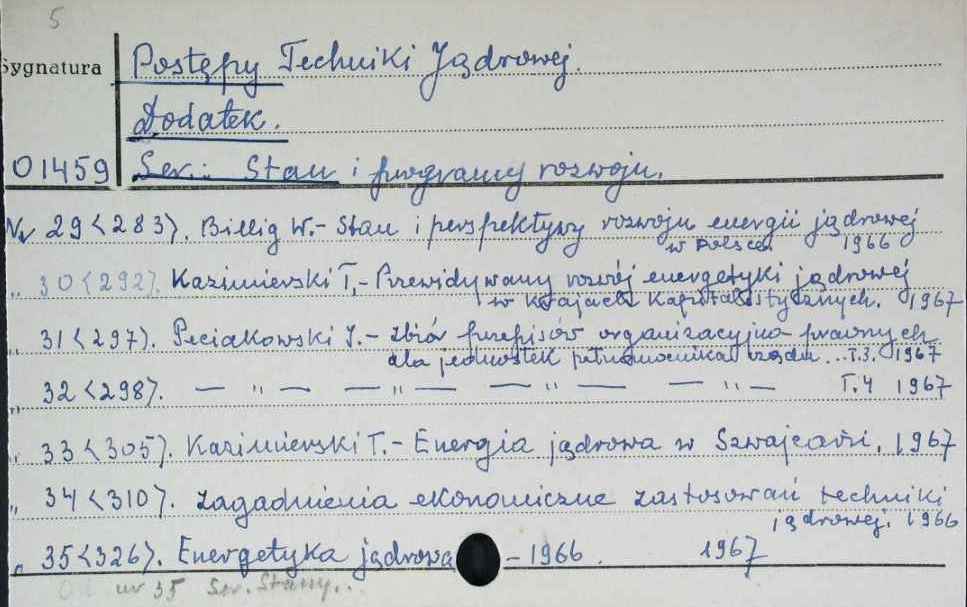 5
Sygnatura Postępy Techniki Jądrowej.
Dodatek.
01459 Ser.: Stan i programy rozwoju.
Nr 29<283>. Billig W.- Stan i perspektywy rozwoju energii jądrowej
w Polsce 1966
„ 30<292>. Kazimierski T.- Przewidywany rozwój energetyki jądrowej
w krajach kapitalistycznych. 1967
„ 31<297>. Peciakowski J.- Zbiór przepisów organizacyjno-prawnych
dla jednostek pełnomocnika rządu... T.3. 1967
„ 32<298>. — „ — — „ — — „ — — „ — T.4 1967
„ 33<305>. Kazimierski T.- Energia jądrowa w Szwajcarii. 1967
„ 34<310>. Zagadnienia ekonomiczne zastosowań techniki
jądrowej. 1966
„ 35<326>. Energetyka jądrowa - 1966. 1967
nr 35 Ser. Stany..